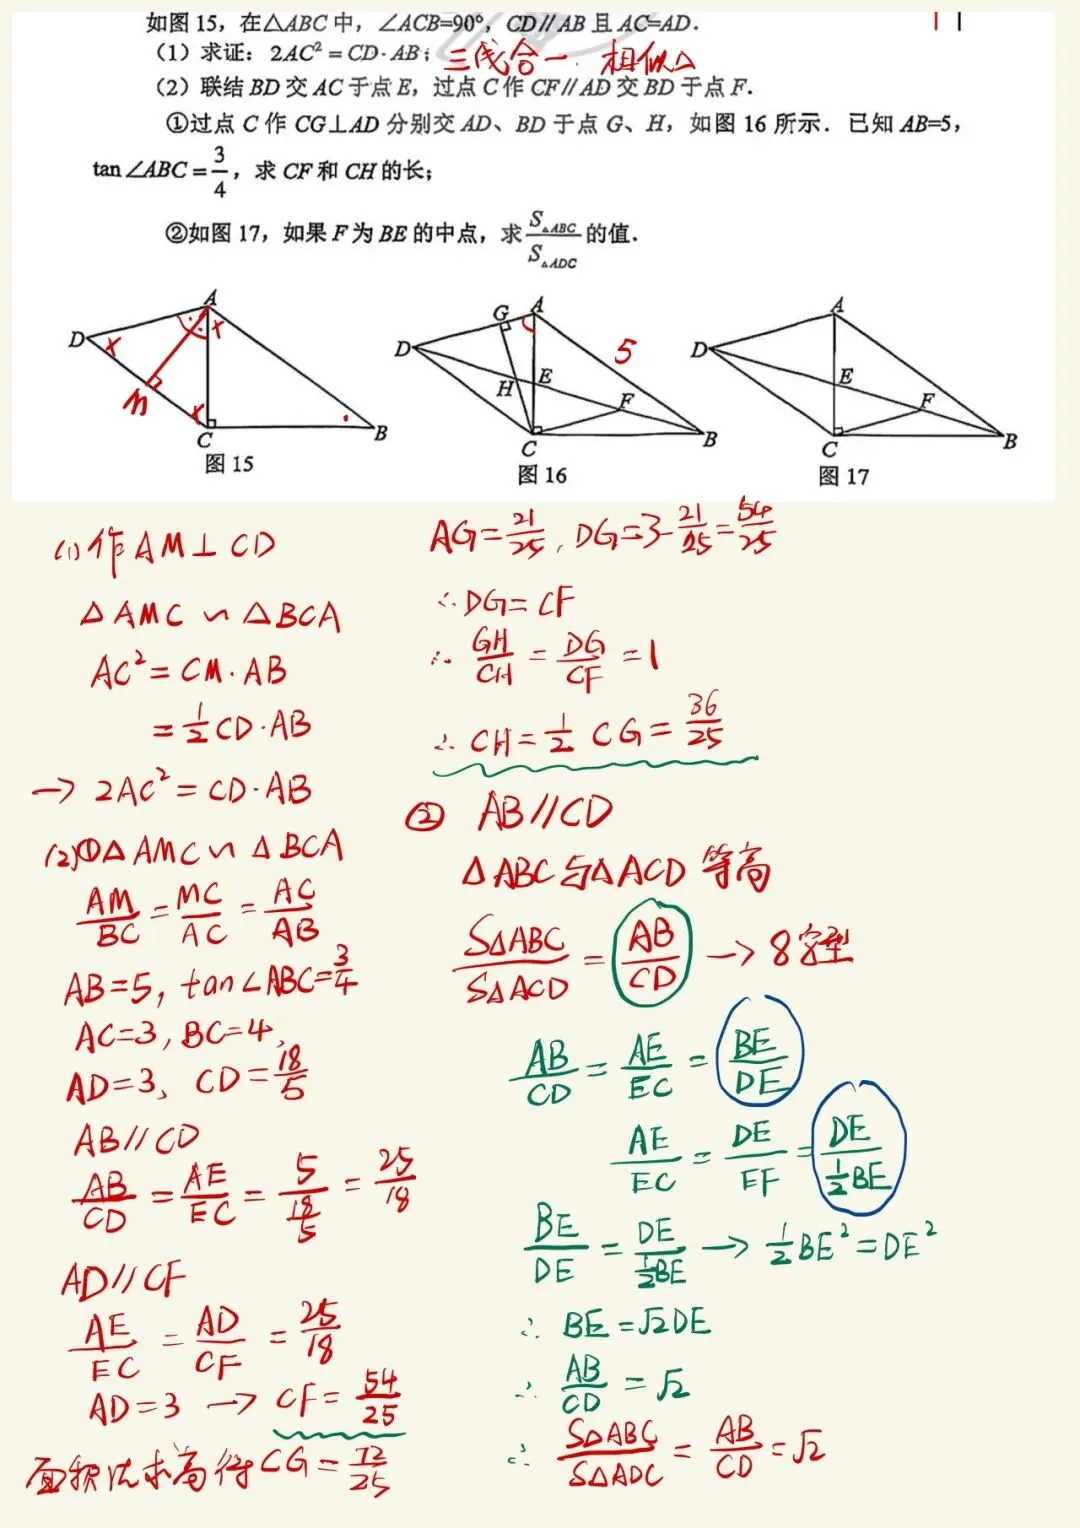 如图15，在△ABC中，∠ACB=90°，CD∥AB且AC=AD．
（1）求证：2AC²=CD·AB；三线合一 相似△
（2）联结BD交AC于点E，过点C作CF∥AD交BD于点F．
①过点C作CG⊥AD分别交AD、BD于点G、H，如图16所示．已知AB=5，
tan∠ABC=3/4，求CF和CH的长；
②如图17，如果F为BE的中点，求S△ABC/S△ADC的值．
A
D
×
×
M
×
C
B
图15
G
A
D
5
H
E
F
C
B
图16
A
D
E
F
C
B
图17
(1)作AM⊥CD
△AMC∽△BCA
AC²=CM·AB
=1/2CD·AB
→2AC²=CD·AB
(2)①△AMC∽△BCA
AM/BC=MC/AC=AC/AB
AB=5, tan∠ABC=3/4
AC=3, BC=4,
AD=3, CD=18/5
AB//CD
AB/CD=AE/EC=5/(18/5)=25/18
AD//CF
AE/EC=AD/CF=25/18
AD=3→CF=54/25
面积法求高得CG=72/25
AG=21/25, DG=3-21/25=54/25
∴DG=CF
∴GH/CH=DG/CF=1
∴CH=1/2CG=36/25
② AB//CD
△ABC与△ACD等高
S△ABC/S△ACD=AB/CD→8字型
AB/CD=AE/EC=BE/DE
AE/EC=DE/EF=DE/(1/2BE)
BE/DE=DE/(1/2BE)→1/2BE²=DE²
∴BE=√2DE
∴AB/CD=√2
∴S△ABC/S△ADC=AB/CD=√2